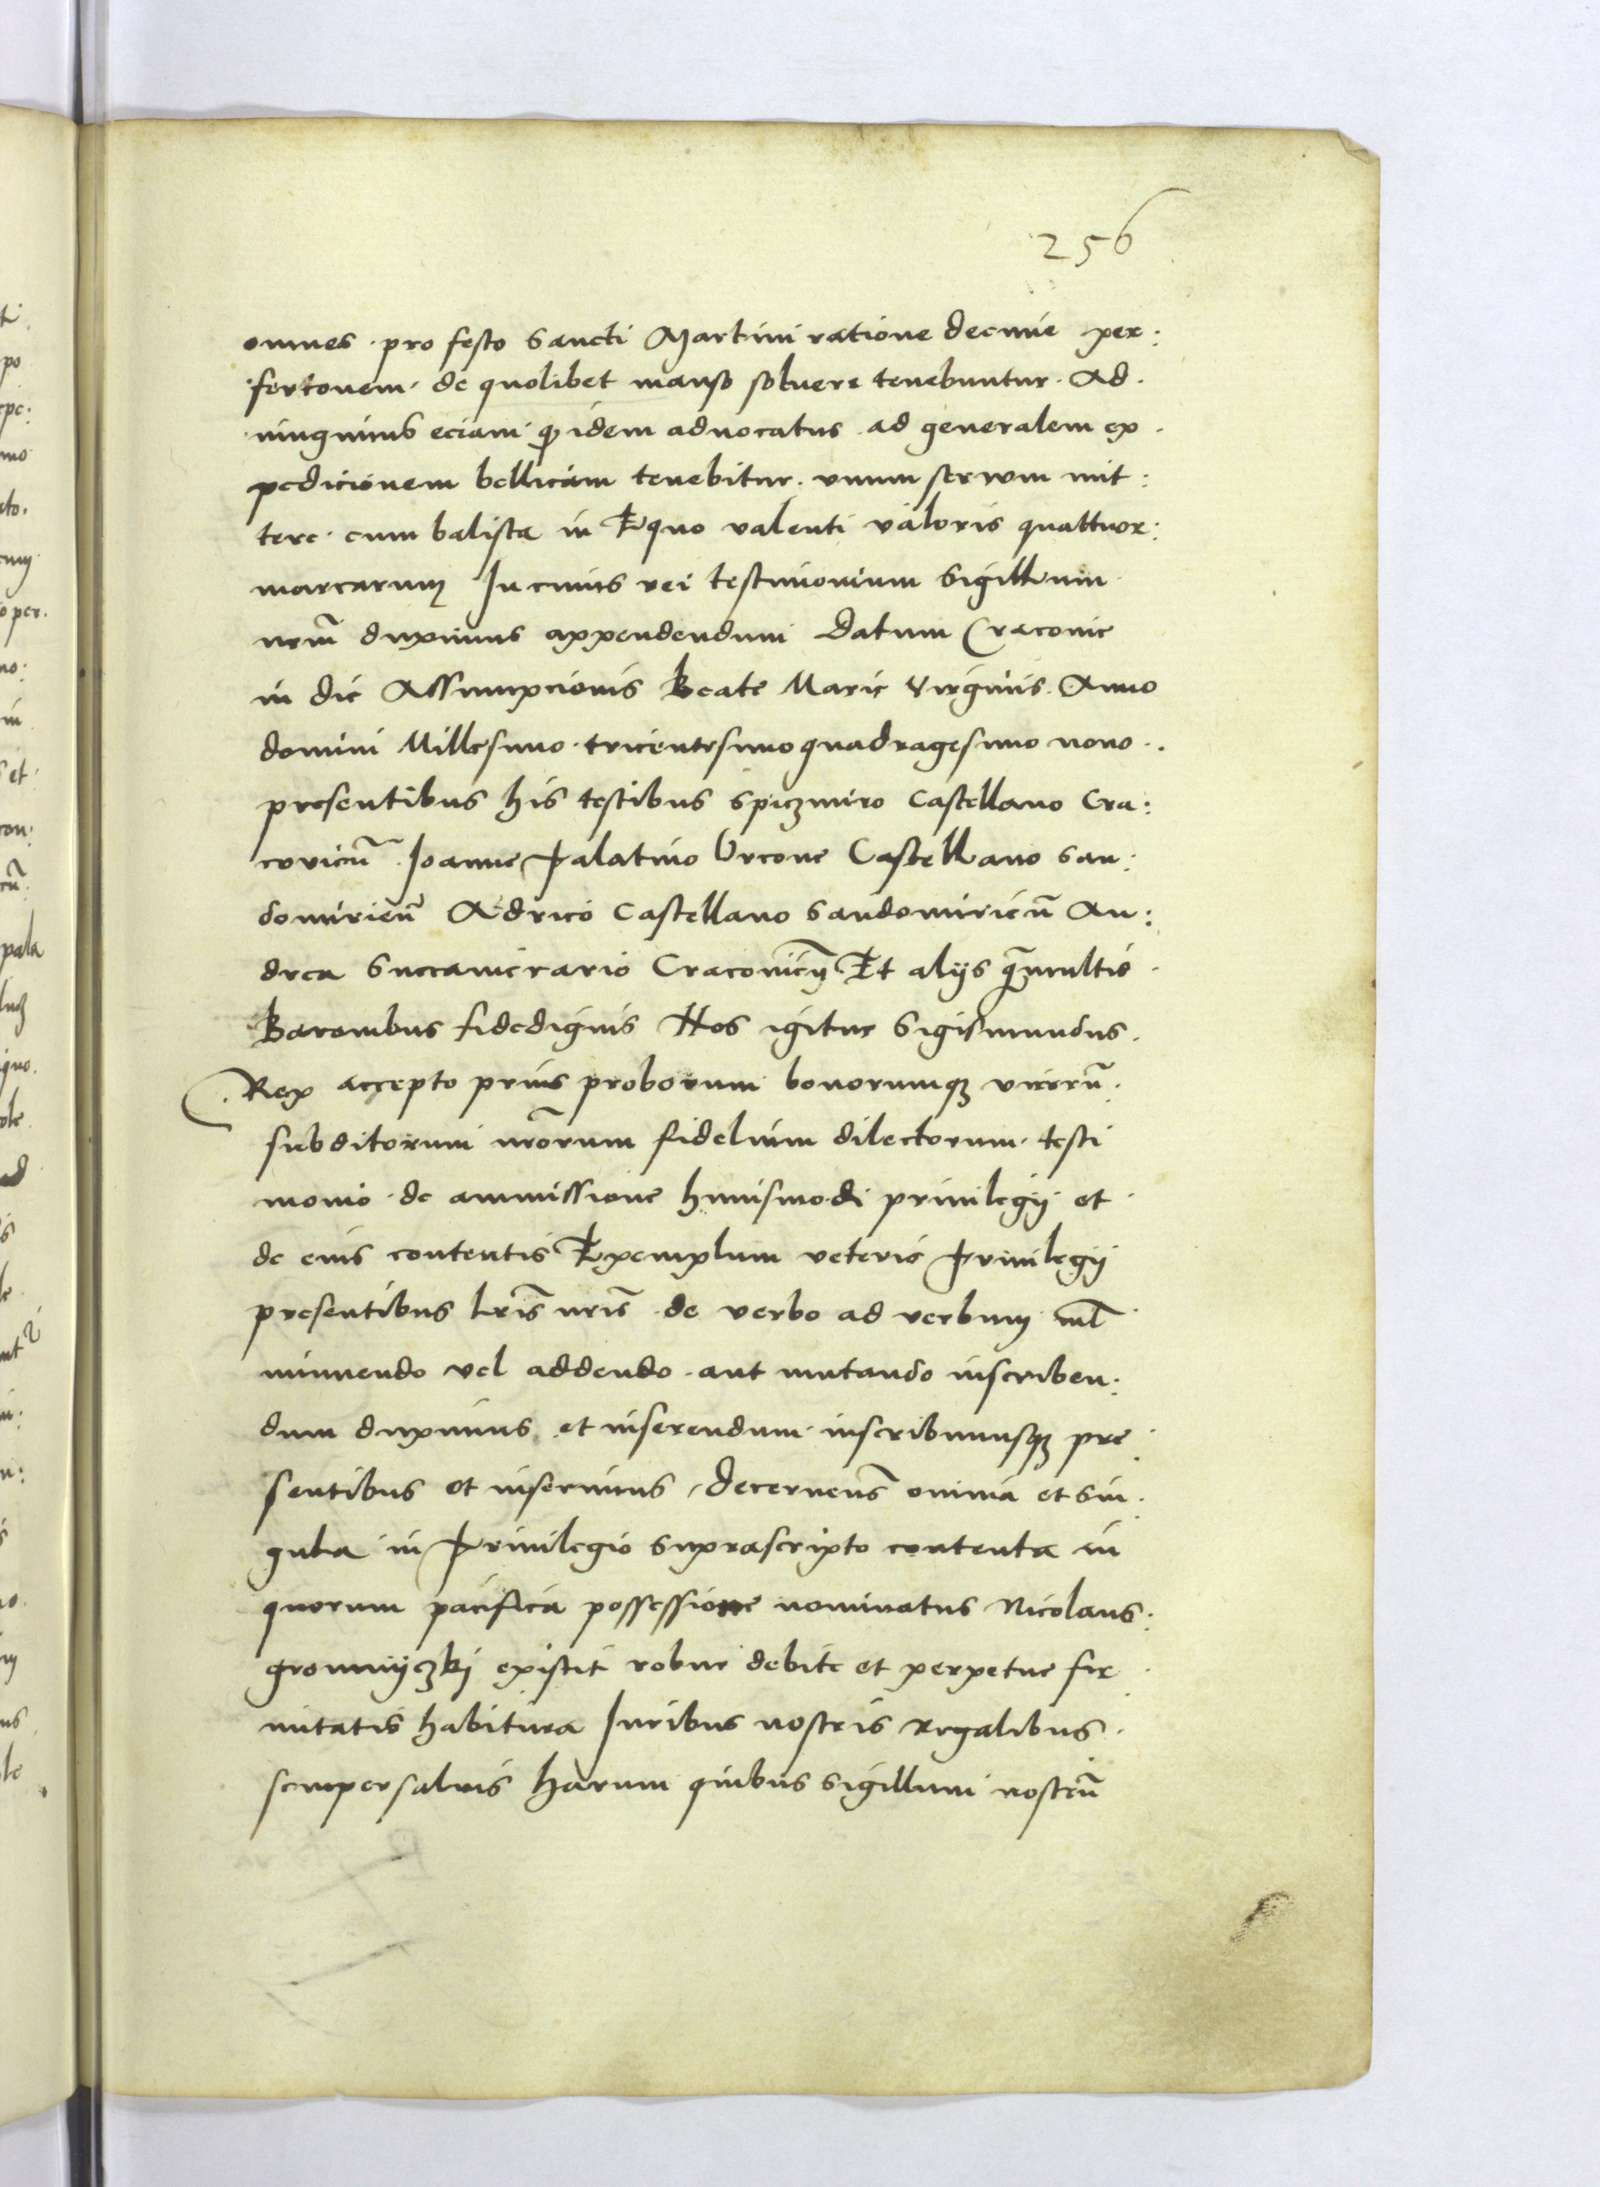 256
omnes · pro festo Sancti Martini ratione decime per:
fertonem · de quolibet manso soluere tenebuntur · Ad ·
iungimus eciam ꝙ idem aduocatus ad generalem ex ·
pedicionem bellicam tenebitur · vnum seruum mit:
tere · cum balista in Equo valenti valoris quattuor:
marcarum In cuius rei testimonium Sigillum
nrm̄ duximus appendendum Datum Cracouie
in die Assumpcionis Beate Marie Virginis · Anno
domini Millesimo · tricentesimo quadragesimo nono ·
presentibus his testibus Spiczmiro Castellano Cra:
couien̄ · Ioanne Palatino Vrcone Castellano San:
domirien̄ Adrico Castellano Sandomirien̄ An:
drea Succamerario Cracouien̄ Et alijs q̄mmultis ·
Baronibus fidedignis Nos igitur Sigismundus ·
Rex accepto prius proborum bonorumqꝫ virorū ·
subditorum nr̄orum fidelium dilectorum · testi
monio · de ammissione huiusmodi priuilegij et ·
de eius contentis Exemplum veteris Priuilegij
presentibus lr̄is nr̄is · de verbo ad verbum nil̄
minuendo vel addendo · aut mutando inscriben:
dum duximus et inserendum · inscribimusqꝫ pre
sentibus et inserimus · Decernen̄s omnia et sin ·
gula in Priuilegio suprascripto contenta in
quorum pacifica possessione nominatus Nicolaus:
gromnyczkj existit robur debite et perpetue fir
mitatis habitura Iuribus nostris Regalibus ·
semper saluis Harum quibus Sigillum nostrū